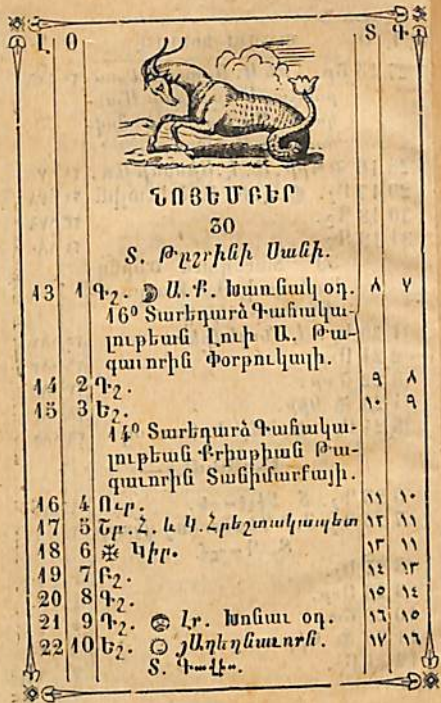 Լ Օ Տ Գ
ՆՈՅԵՄԲԵՐ
30
Տ. Թըշրինի Սանի.
13 1 Գշ. Ա. Ք. Խառնակ օդ. ٨ ٧
16º Տարեդարձ Գահակա-
լութեան Լուի Ա. Թա-
գաւորին Փօրթուկալի.
14 2 Դշ. ٩ ٨
15 3 Եշ. ١٠ ٩
14º Տարեդարձ Գահակա-
լութեան Քրիսթիան Թա-
գաւորին Տանիմարքայի.
16 4 Ուր. ١١ ١٠
17 5 Շբ. Հ. և Կ. Հրեշտակապետ ١٢ ١١
18 6 ✠ Կիր. ١٣ ١٢
19 7 Բշ. ١٤ ١٣
20 8 Գշ. ١٥ ١٤
21 9 Դշ. Լր. Խոնաւ օդ. ١٦ ١٥
22 10 Եշ. յԱղեղնաւորն. ١٧ ١٦